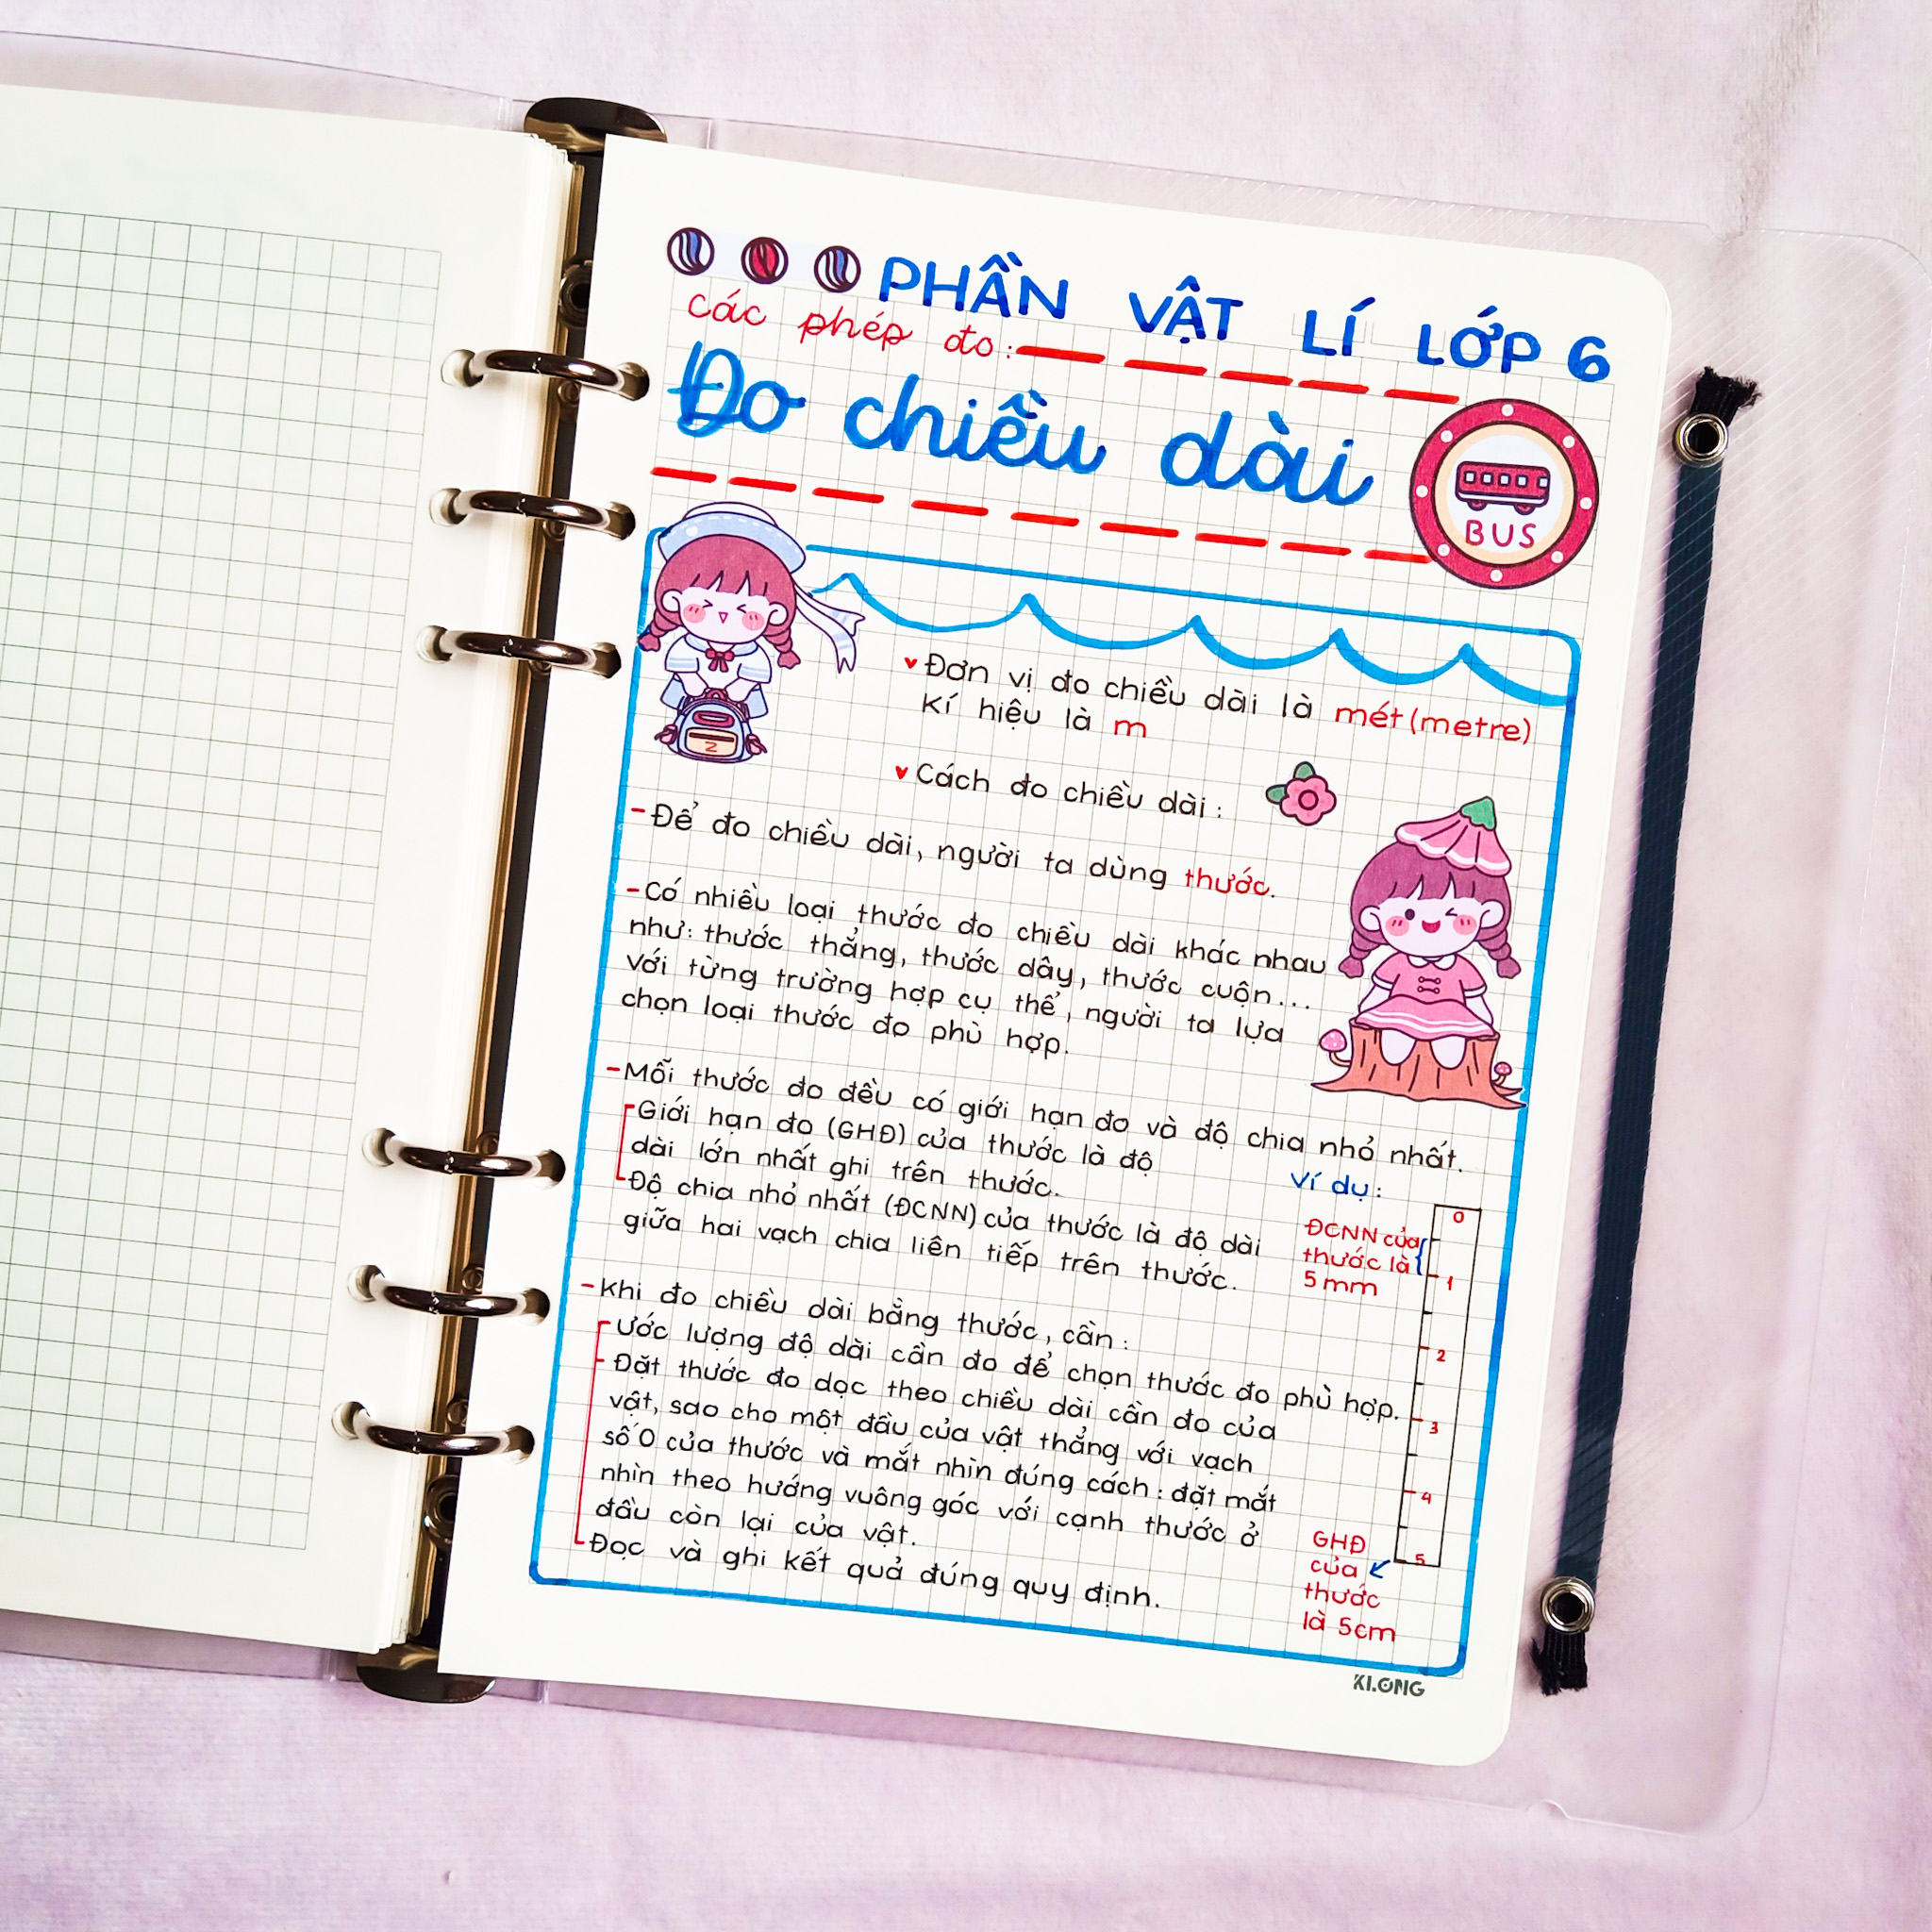 PHẦN VẬT LÍ LỚP 6
các phép đo:
Đo chiều dài
BUS
Đơn vị đo chiều dài là mét (metre)
Kí hiệu là m
Cách đo chiều dài:
- Để đo chiều dài, người ta dùng thước.
- Có nhiều loại thước đo chiều dài khác nhau
như: thước thẳng, thước dây, thước cuộn...
với từng trường hợp cụ thể, người ta lựa
chọn loại thước đo phù hợp.
- Mỗi thước đo đều có giới hạn đo và độ chia nhỏ nhất.
Giới hạn đo (GHĐ) của thước là độ
dài lớn nhất ghi trên thước.
Độ chia nhỏ nhất (ĐCNN) của thước là độ dài
giữa hai vạch chia liên tiếp trên thước.
Ví dụ:
ĐCNN của
thước là
5 mm
0
1
2
3
4
5
- Khi đo chiều dài bằng thước, cần:
Ước lượng độ dài cần đo để chọn thước đo phù hợp.
Đặt thước đo dọc theo chiều dài cần đo của
vật, sao cho một đầu của vật thẳng với vạch
số 0 của thước và mắt nhìn đúng cách: đặt mắt
nhìn theo hướng vuông góc với cạnh thước ở
đầu còn lại của vật.
Đọc và ghi kết quả đúng quy định.
GHĐ
của
thước
là 5cm
KLONG
2